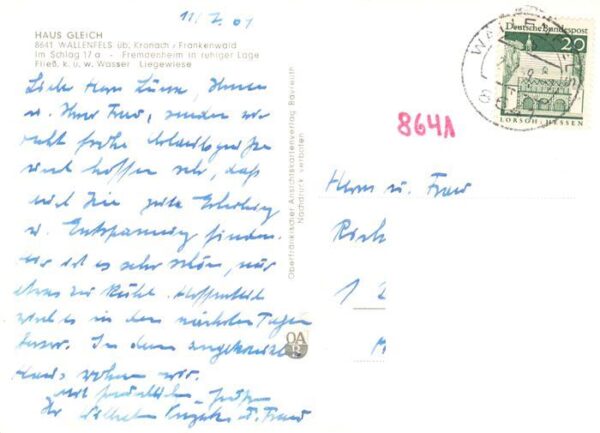 HAUS GLEICH
8641 WALLENFELS üb. Kronach / Frankenwald
Im Schlag 17a - Fremdenheim in ruhiger Lage
Fließ. k. u. w. Wasser Liegewiese
Ihnen
u. Ihrer Frau, senden wir
recht frohe Urlaubsgrüße
und hoffen sehr, daß
auch Sie gute Erholung
u. Entspannung finden.
Hier ist es sehr schön, nur
etwas zu kühl. Hoffentlich
wird es in den nächsten Tagen
besser. In dem angekreuzten
Haus, wohnen wir.
Mit freundlichen Grüßen
Ihr u. Frau
Oberfränkischer Ansichtskartenverlag Bayreuth
Nachdruck verboten
OA
B
864A
Deutsche Bundespost
20
LORSCH / HESSEN
Herrn u. Frau
Rich
1 2